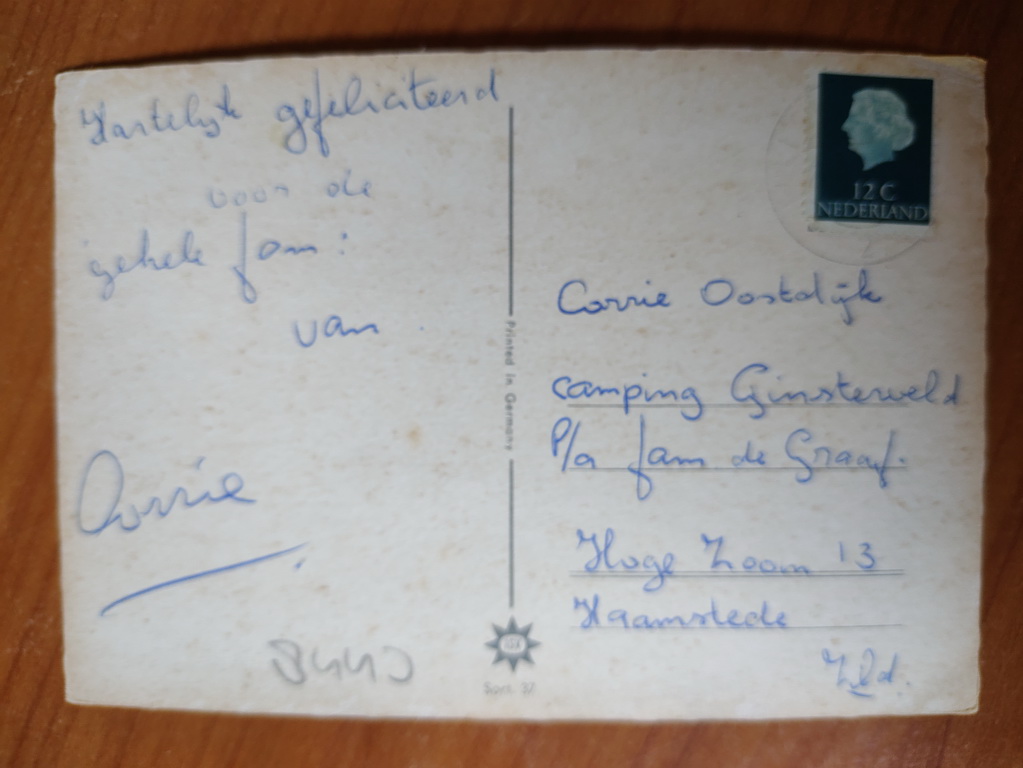 Hartelijk gefeliciteerd
voor de
gehele fam:
van
Corrie
12 C
NEDERLAND
Corrie Oostdijk
camping Ginsterveld
P/a fam de Graaf.
Hoge Zoom 13
Haamstede
Zld.
Printed in Germany
Sort. 37